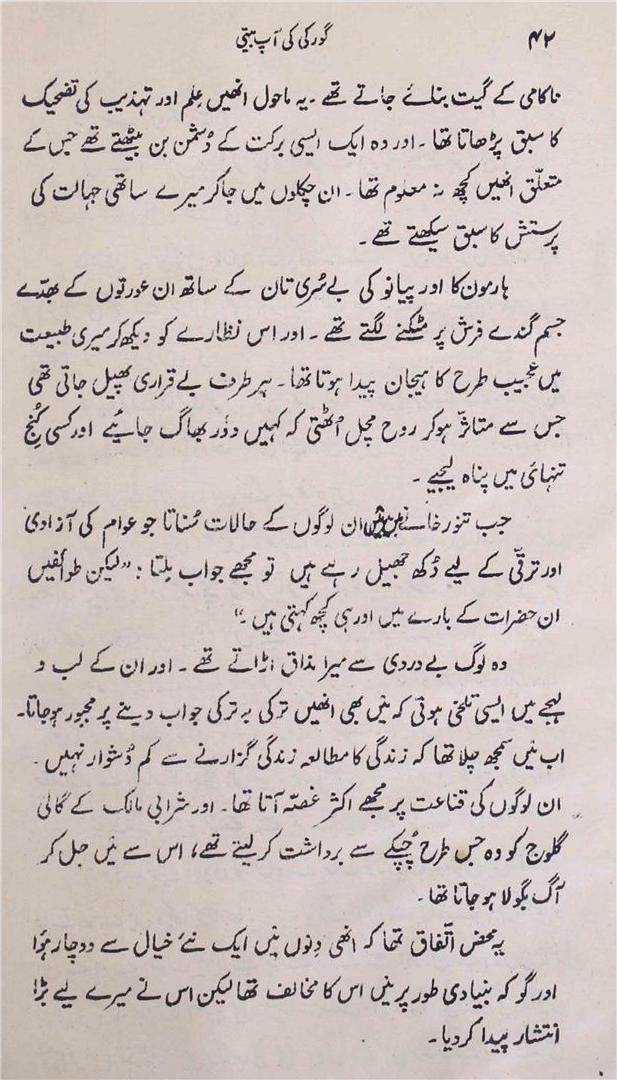 ۴۲ گورکی کی آپ بیتی
ناکامی کے گیت بنائے جاتے تھے ۔ یہ ماحول انھیں عِلم اور تہذیب کی تضحیک
کا سبق پڑھاتا تھا ۔ اور وہ ایک ایسی برکت کے دُشمن بن بیٹھتے تھے جس کے
متعلّق انھیں کچھ نہ معلوم تھا ۔ ان چکلوں میں جاکر میرے ساتھی جہالت کی
پرستش کا سبق سیکھتے تھے ۔
ہارمون کا اور پیانو کی بے سُری تان کے ساتھ ان عورتوں کے بھدّے
جسم گندے فرش پر مٹکنے لگتے تھے ۔ اور اس نظارے کو دیکھ کر میری طبیعت
میں عجیب طرح کا ہیجان پیدا ہوتا تھا ۔ ہر طرف بے قراری پھیل جاتی تھی
جس سے متاثرّ ہوکر روح مچل اُٹھتی کہ کہیں دور بھاگ جائیے اور کسی کُنج
تنہائی میں پناہ لیجیے ۔
جب تنور خانے میں میں ان لوگوں کے حالات سُناتا جو عوام کی آزادی
اور ترقّی کے لیے دُکھ جھیل رہے ہیں تو مجھے جواب ملتا : "لیکن طوائفیں
ان حضرات کے بارے میں اور ہی کچھ کہتی ہیں ۔"
وہ لوگ بے دردی سے میرا مذاق اڑاتے تھے ۔ اور ان کے لب و
لہجے میں ایسی تلخی ہوتی کہ مَیں بھی انھیں ترکی بہ ترکی جواب دینے پر مجبور ہوجاتا۔
اب مَیں سمجھ چلا تھا کہ زندگی کا مطالعہ زندگی گزارنے سے کم دُشوار نہیں ۔
ان لوگوں کی قناعت پر مجھے اکثر غصّہ آتا تھا ۔ اور شرابی مالک کے گالی
گلوج کو وہ جس طرح چُپکے سے برداشت کرلیتے تھے، اس سے مَیں جل کر
آگ بگولا ہو جاتا تھا ۔
یہ محض اتّفاق تھا کہ انھی دِنوں مَیں ایک نئے خیال سے دوچار ہؤا
اور گو کہ بنیادی طور پر مَیں اس کا مخالف تھا لیکن اس نے میرے لیے بڑا
انتشار پیدا کردیا ۔